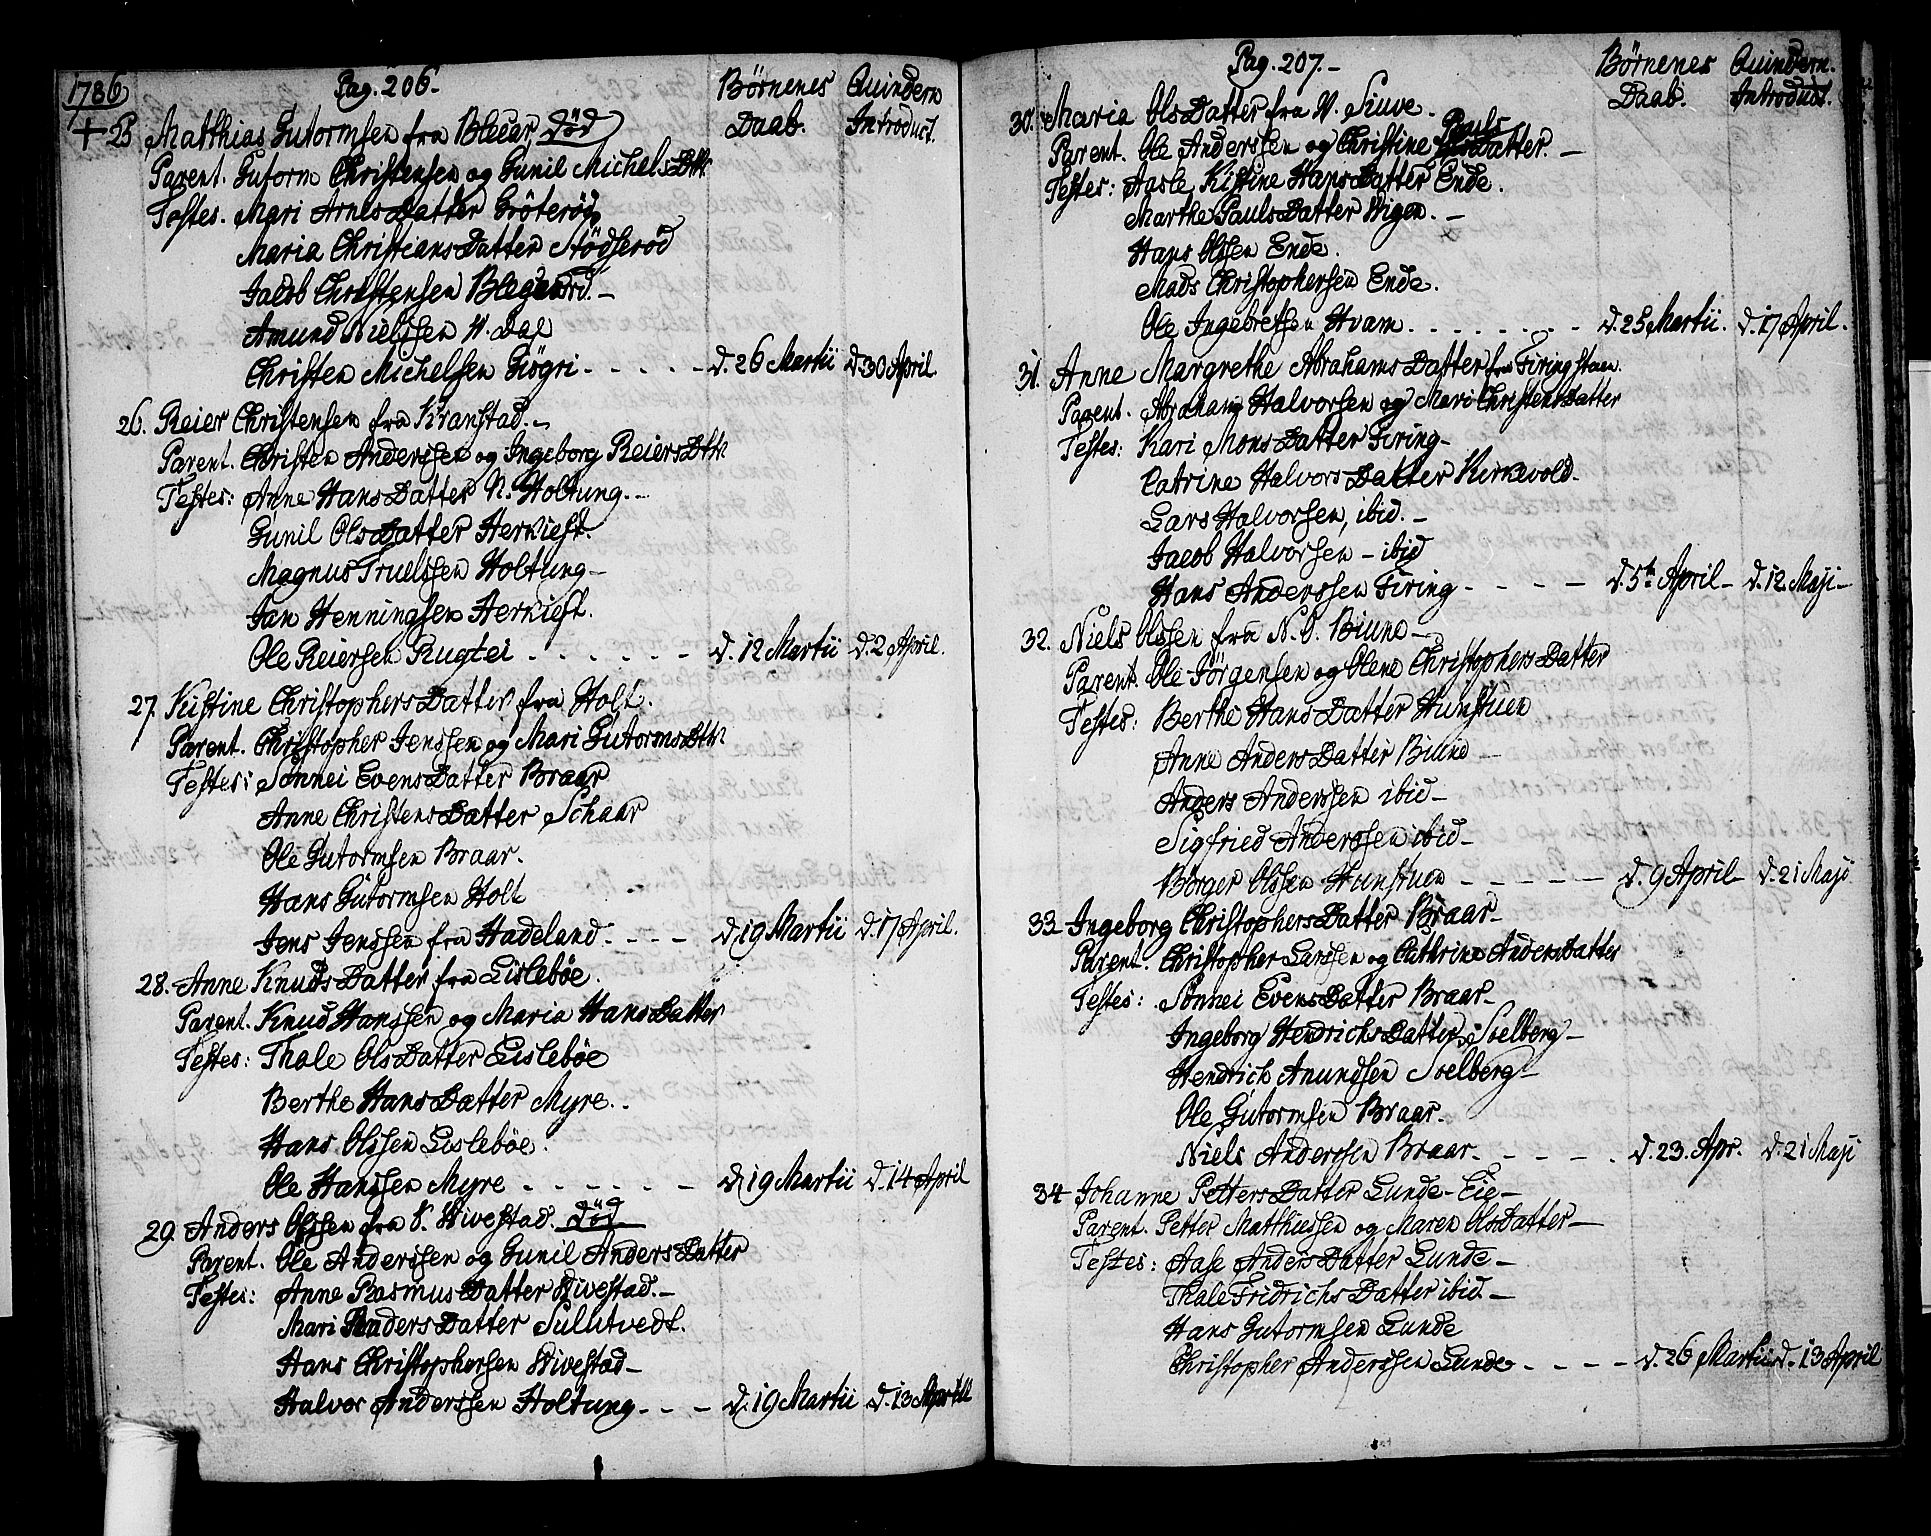 1786
Pag. 206.
Börnenes Daab.
Quindern Introduct.
+ 25 Matthias Gutormsen fra Blecar død
Parent. Gutorm Christensen og Gunil Michels Dtt.
Testes. Mari Arnes Datter Gröteröd
Maria Christians Datter Stödseröd
Jacob Christensen Blegeard.-
Amund Nielssen W. Dal
Christen Michelsen Gisgri - - - - - d. 26 Martii d. 30 April.
26. Reier Christensen fra Kranstad.-
Parent. Christen Anderssen og Ingeborg Reiers Dtt.
Testes: Anne Hans Datter N. Holtung.-
Gunil Ols Datter Herkiest.
Magnus Truelssen Holtung-
Jan Henningsen Herkiest.
Ole Reiersen Rugtei - - - - - - d. 12 Martii d. 2 April.
27. Kistine Christophers Datter fra Holt.
Parent. Christopher Jenssen og Mari Gutorms Dtt.
Testes: Sönnei Evens Datter Braar
Anne Christens Datter Schaar
Ole Gutormsen Braar.
Hans Gutormsen Holt
Jens Jenssen fra Hadeland. - - - d. 19 Martii d. 17 April.
28. Anne Knuds Datter fra Lislebøe.
Parent. Knud Hanssen og Maria Hans Datter
Testes: Thale Ols Datter Lislebøe
Berthe Hans Datter Myre.
Hans Olssen Lislebøe.
Ole Hanssen Myre - - - - - - d. 19 Martii d. 14 April
29. Anders Olssen fra S. Wivestad. død
Parent. Ole Anderssen og Gunil Anders Datter
Testes: Anne Rasmus Datter Wivestad.-
Mari Anders Datter Sullutvedt.
Hans Christophersen Wivestad-
Halvor Anderssen Holtung - - - d. 19 Martii d. 13 April
Pag. 207.-
Börnenes Daab.
Quindern. Introduct.
30. Maria Ols Datter fra W. Siuve.
Pauls
Parent. Ole Anderssen og Christine Datter.-
Testes: Aasle Kistine Hans Datter Ende.
Marthe Pauls Datter Wigen.-
Hans Olssen Ende.
Mads Christophersen Ende.
Ole Ingebretsen Hvam - - - - - - - d. 25 Martii. d. 17 April.
31. Anne Margrethe Abrahams Datter fra Firingstuen.
Parent. Abraham Halvorsen og Mari Christens Datter
Testes: Kari Mons Datter Firing-
Catrine Halvors Datter Kirkevold-
Lars Halvorsen, ibid.-
Jacob Halvorsen - ibid
Hans Anderssen Firing - - - - d. 5te April- d. 12 Maji-
32. Niels Olssen fra N. S. Biune-
Parent. Ole Jörgensen og Olene Christophers Datter
Testes: Berthe Hans Datter Hunstuen
Anne Anders Datter Biune -
Anders Anderssen ibid-
Sigfried Anderssen ibid-
Börger Olssen Hunstuen - - - - - d. 9 April- d. 21 Maji
33. Ingeborg Christophers Datter Braar-
Parent. Christopher Larssen og Cathrine Anders Datter
Testes: Sönnei Evens Datter Braar-
Ingeborg Hendrichs Datter Soelberg-
Hendrich Amundsen Soelberg-
Ole Gutormsen Braar.
Niels Anderssen Braar. - - - - d. 23. Apr. d. 21 Maji
34 Johanne Petters Datter Lunde-Eie-
Parent. Petter Matthiessen og Maren Ols Datter-
Testes: Aase Anders Datter Lunde-
Thale Fridrichs Datter ibid.-
Hans Gutormsen Lunde
Christopher Anderssen Lunde - - - - d. 26 Martii d. 13 April